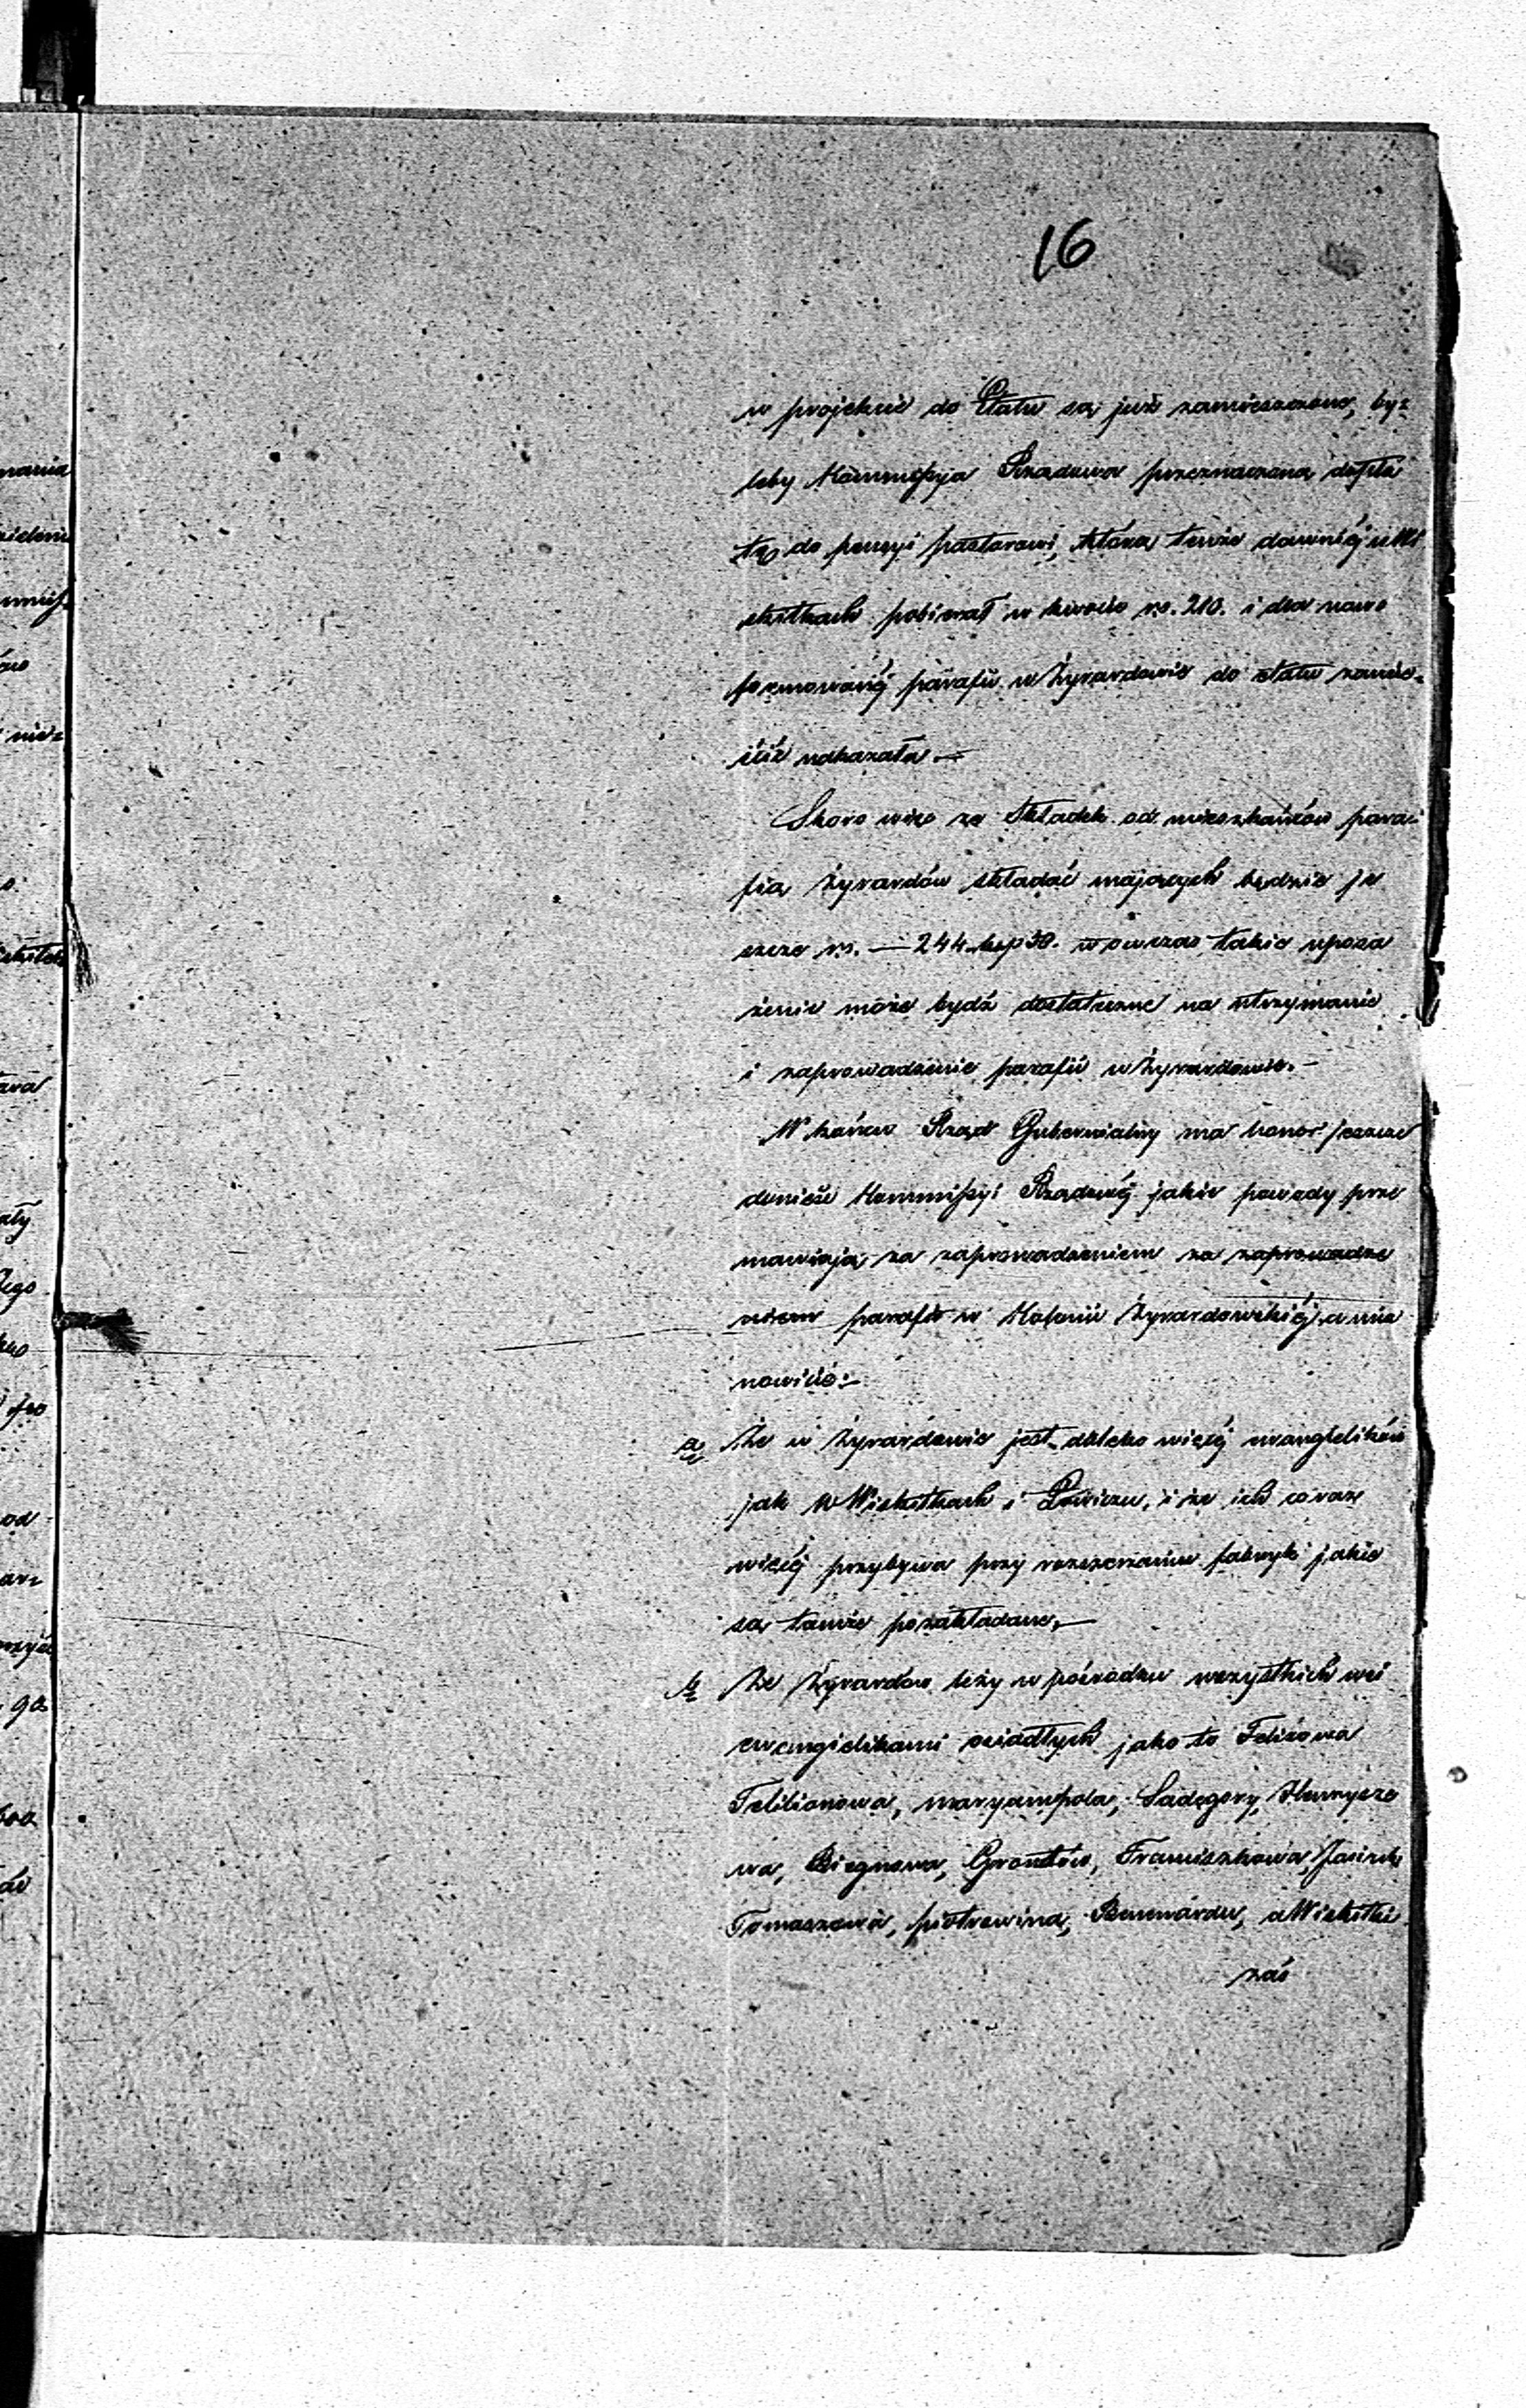 16
w projekcie do Etatu są już zamieszczone, by=
leby Kommissya Rządowa przeznaczoną dopła
tę do pensyi pastorowi, którą tenże dawniéj w Wi
skitkach pobierał w kwocie rs. 210. i dla nowo
formowanéj parafii w Żyrardowie do etatu zamie=
ścić nakazała —
Skoro więc ze składek od mieszkańców para=
fią Żyrardów składać mających będzie je
szcze rs. — 244 kop 50. wówczas takie uposa
żenie może bydź dostateczne na utrzymanie
i zaprowadzenie parafii w Żyrardowie. —
W końcu Rząd Gubernialny ma honor jeszcze
donieść Kommissyi Rządowéj jakie powody prze
mawiają za zaprowadzeniem za zaprowadze
niem parafii w Kolonii Żyrardowskiéj, a mia
nowicie: —
a, Że w Żyrardowie jest daleko więcéj ewanglelików
jak w Wiskitkach i Łowiczu, i że ich coraz
więcéj przybywa przy rozszerzaniu fabryk jakie
są tamże pozakładane. —
b, Że Żyrardów leży w pośrodku wszystkich wsi
ewengielikami osiadłych jako to Felixowa
Felilionowa, maryampola, Sadegory, Henrysze
wa, Biegnowa, Grontów, Franciszkowa,
Tomaszewa, piotrowina, Bennardu, a Wiskitki
zaś
nania
nie=
go
od
90